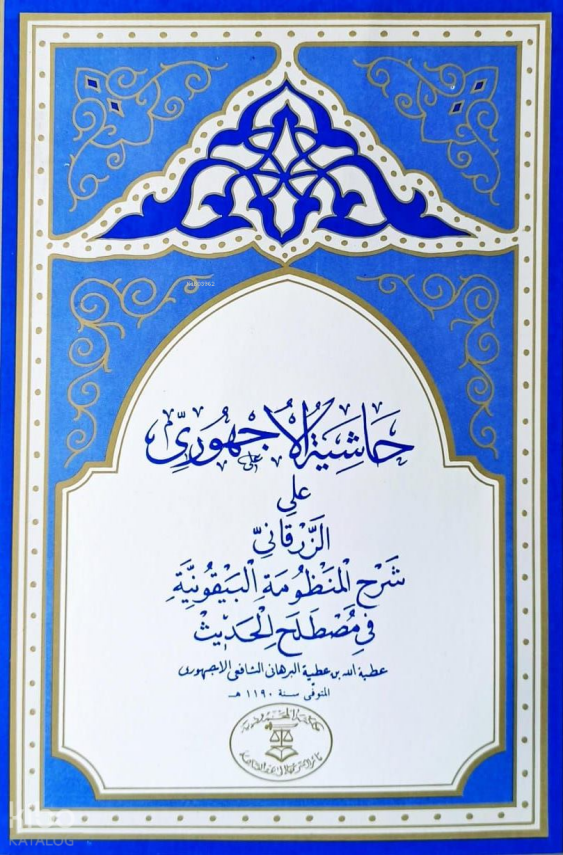 حَاشِيَةُ الْأُجْهُورِيِّ
على
الزَّرْقَانِيّ
شَرْحِ الْمَنْظُومَةِ الْبَيْقُونِيَّةِ
فِي مُصْطَلَحِ الْحَدِيْثْ
عطية الله بن عطية البرهان الشافعي الاجهوري
المتوفى سنة ١١٩٠ هـ
KATALOG